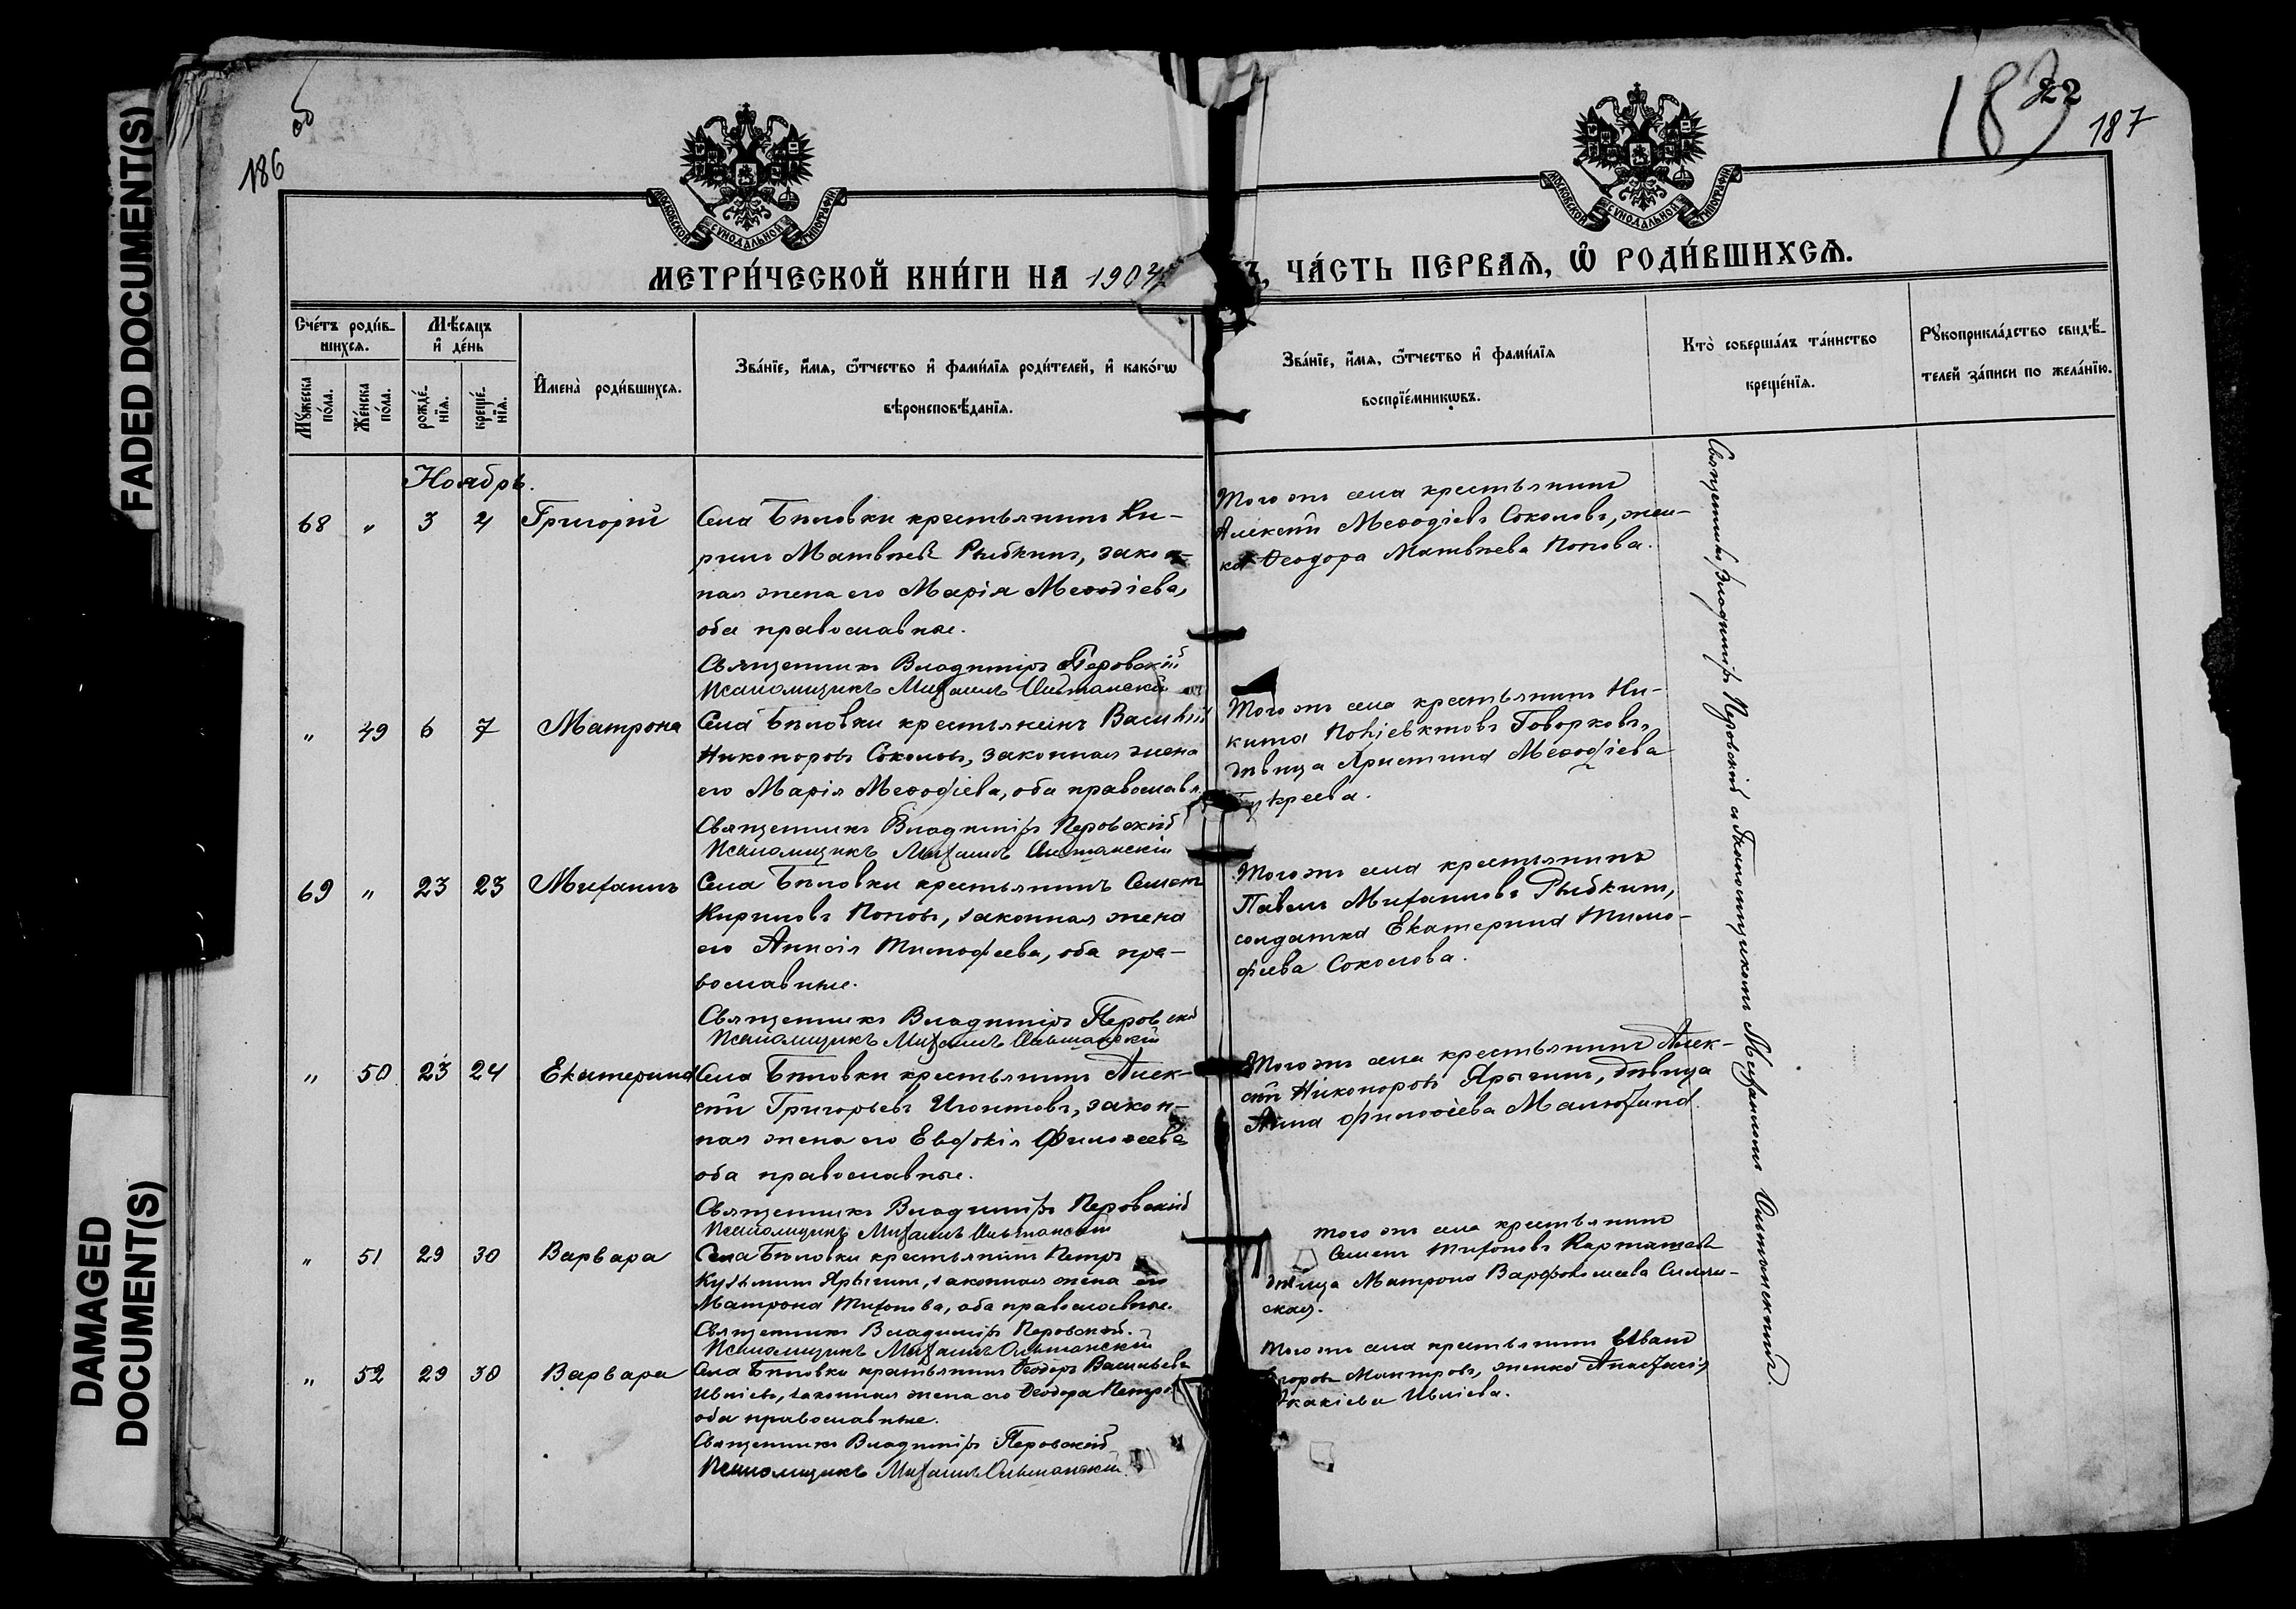 FADED DOCUMENT(S)
DAMAGED
DOCUMENT(S)
186
об
22
187
МОСКОВСКОЙ СѴНОДАЛЬНОЙ ТИПОГРАФІИ
МОСКОВСКОЙ СѴНОДАЛЬНОЙ ТИПОГРАФІИ
МЕТРИ́ЧЕСКОЙ КНИ́ГИ НА 190
ЧА́СТЬ ПЕРВАѦ, Ѽ РОДИ́ВШИХСѦ.
Сче́тъ роди́в-
шихся.
Мѣ́сяцъ
и҆ де́нь
Мꙋ́жеска
по́ла.
Же́нска
по́ла.
рожде́-
нїѧ.
креще́-
нїѧ.
И҆мена̀ роди́вшихсѧ.
Зва́нїе, и҆́мѧ, ѻ҆́тчество и҆ фами́лїѧ роди́телей, и҆ како́гѡ
вѣроисповѣ́данїѧ.
Зва́нїе, и҆́мѧ, ѻ҆́тчество и҆ фами́лїѧ
воспрїе́мникѡвъ.
Кто̀ соверша́лъ та́инство
креще́нїѧ.
Рꙋкоприкла́дство свидѣ́-
телей за́писи по жела́нїю.
Ноябрь.
68 „ 3 4 Григорій
Села Бѣловки крестьянинъ Ки-
риллъ Матвѣевъ Рыбкинъ, закон-
ная жена его Марія Меѳодіева,
оба православные.
Священникъ Владиміръ Перовскій
Псаломщикъ Михаилъ Ольшанскій
Того же села крестьянинъ
Алексѣй Меѳодіевъ Соколовъ, жен-
ка Ѳеодора Матвѣева Попова.
„ 49 6 7 Матрона
Села Бѣловки крестьянинъ Василій
Никоноровъ Соколовъ, законная жена
его Марія Меѳодіева, оба православн.
Священникъ Владиміръ Перовскій
Псаломщикъ Михаилъ Ольшанскій
Того же села крестьянинъ Ни-
кита Поліевктовъ Говорковъ,
дѣвица Христина Меѳодіева
69 „ 23 23 Михаилъ
Села Бѣловки крестьянинъ Семенъ
Кириловъ Поповъ, законная жена
его Анисія Тимофеева, оба пра-
вославные.
Священникъ Владиміръ Перовскій
Псаломщикъ Михаилъ Ольшанскій
Того же села крестьянинъ
Павелъ Михаиловъ Рыбкинъ,
солдатка Екатерина Тимо-
феева Соколова.
„ 50 23 24 Екатерина
Села Бѣловки крестьянинъ Алек-
сѣй Григорьевъ Игонтовъ, закон-
ная жена его Евдокія Филоѳеева
оба православные.
Священникъ Владиміръ Перовскій
Псаломщикъ Михаилъ Ольшанскій
Того же села крестьянинъ Алек-
сѣй Никоноровъ Ярыгинъ, дѣвица
Анна Филоѳеева Малюхина
„ 51 29 30 Варвара
Села Бѣловки крестьянинъ Петръ
Кузьминъ Ярыгинъ, законная жена его
Матрона Тихонова, оба православные.
Священникъ Владиміръ Перовскій.
Псаломщикъ Михаилъ Ольшанскій
Того же села крестьянинъ
Семенъ Тихоновъ
дѣвица Матрона Варфоломеева
„ 52 29 30 Варвара
Села Бѣловки крестьянинъ Ѳеодоръ Васильевъ
Ивлиевъ, законная жена его Ѳеодора Петро
оба православные.
Священникъ Владиміръ Перовскій
Псаломщикъ Михаилъ Ольшанскій
Того же села крестьянинъ Иванъ
женка Анастасія
Ивлиева.
Священникъ Владиміръ Перовскій съ псаломщикомъ Михаиломъ Ольшанскимъ.